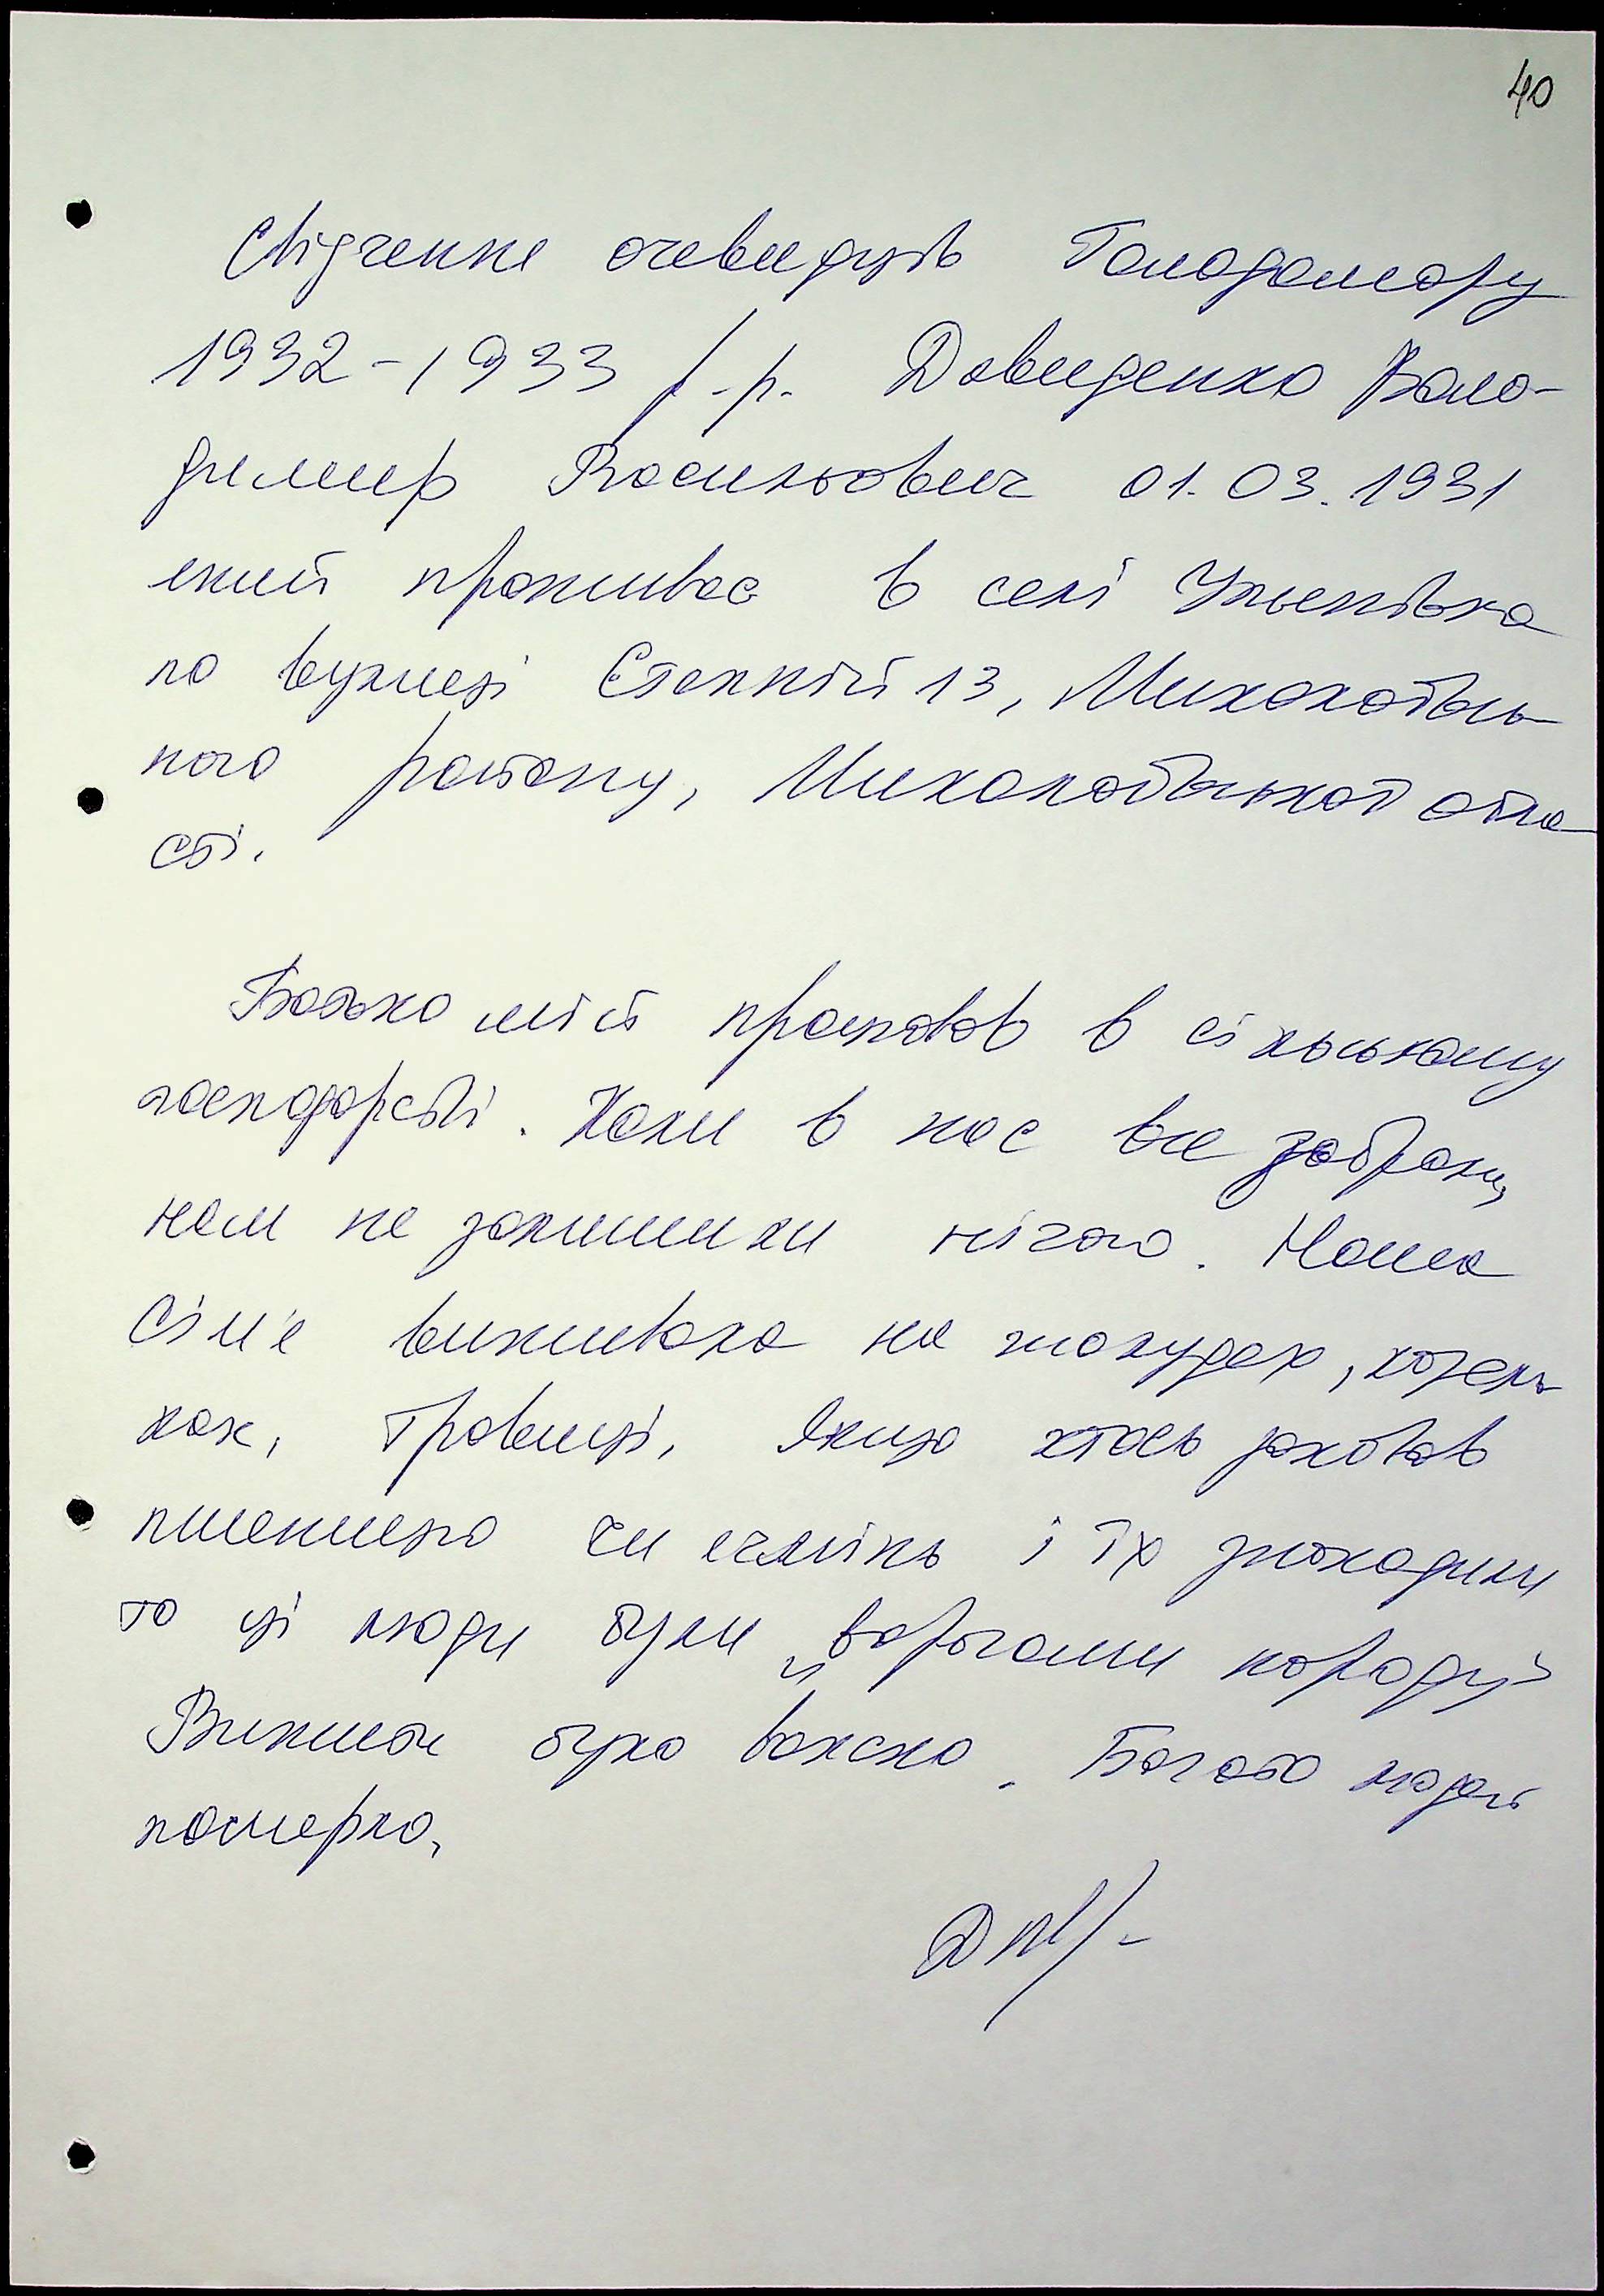 40
Свідчення очевидців Голодомору
1932-1933 р.р. Давиденко Воло-
димир Васильович 01.03.1931
який проживає в селі Ульянівка
по вулиці Степній 13, Миколаївсь-
кого району, Миколаївської обла-
сті.
Батько мій працював в сільському
господарстві. Коли в нас все забрали,
нам не залишили нічого. Наша
сім'я виживала на жолудях, козель-
ках, травиці. Якщо хтось заховав
пшеницю чи ячмінь і їх знаходили
то ці люди були „ворогами народу"
Вижити було важко. Багато людей
померло.